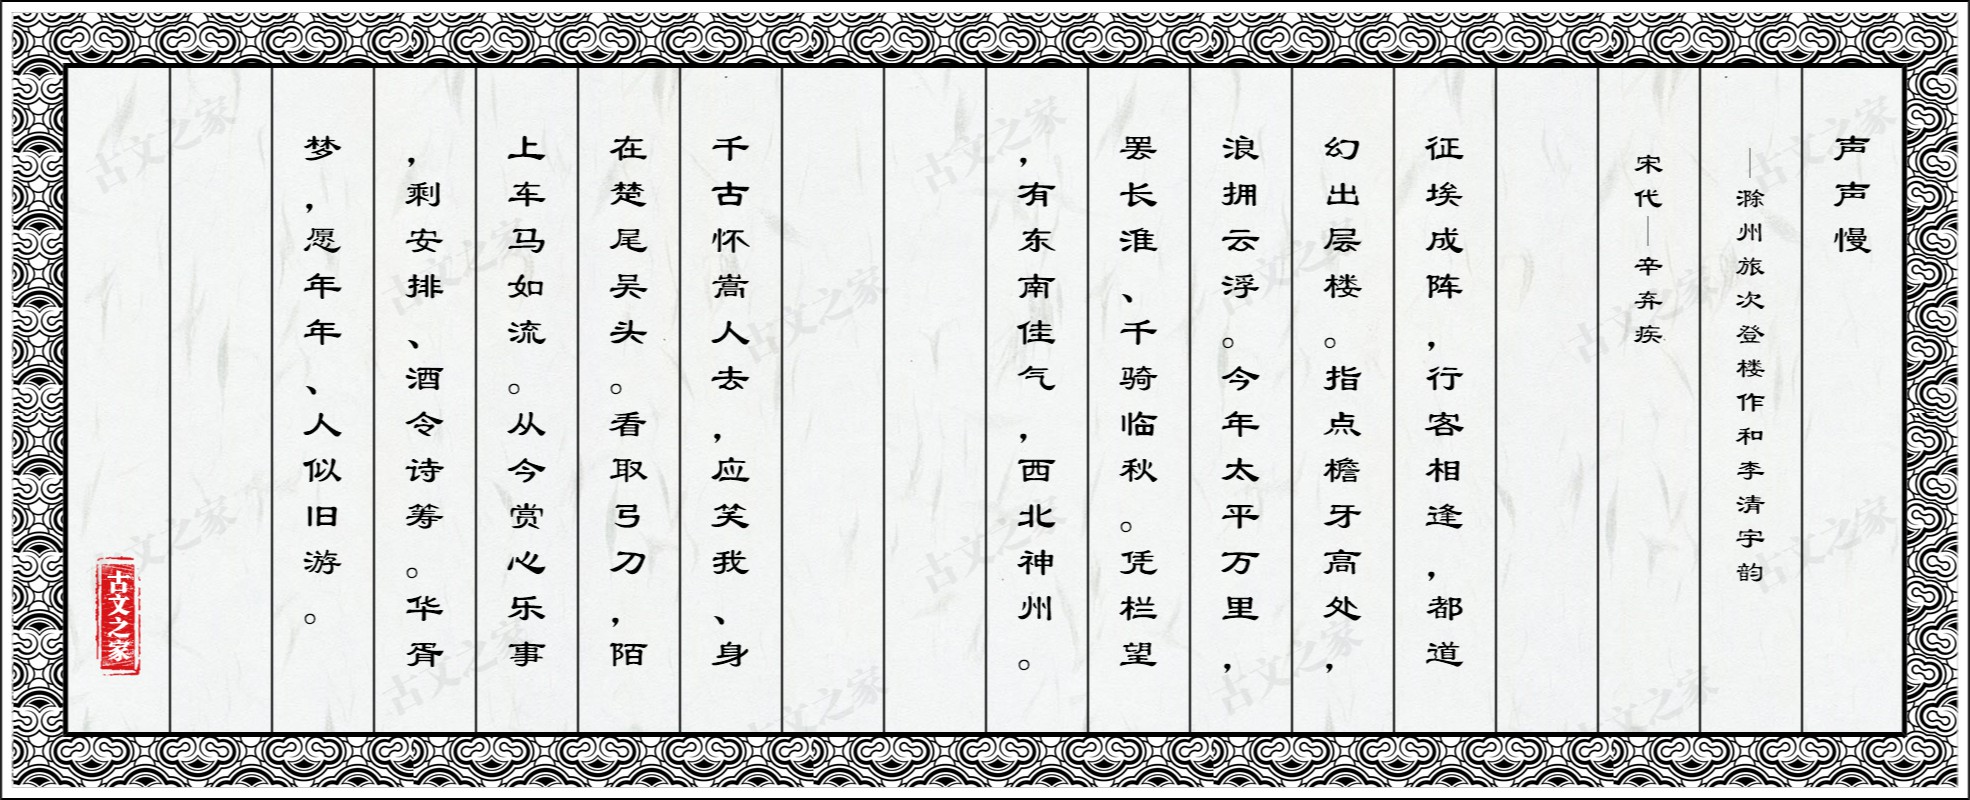 声声慢
—滁州旅次登楼作和李清宇韵
宋代—辛弃疾
征埃成阵，行客相逢，都道
幻出层楼。指点檐牙高处，
浪拥云浮。今年太平万里，
罢长淮、千骑临秋。凭栏望
，有东南佳气，西北神州。
千古怀嵩人去，应笑我、身
在楚尾吴头。看取弓刀，陌
上车马如流。从今赏心乐事
，剩安排、酒令诗筹。华胥
梦，愿年年、人似旧游。
古文之家